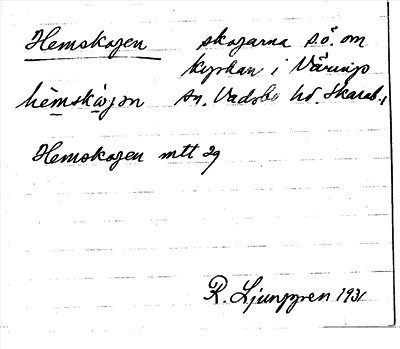 Hemskogen skogarna s.ö. om
kyrkan i Värings
hèmskògən sn. Vadsbo hd. Skarab.
Hemskogen mtt 29
R. Ljunggren 1931